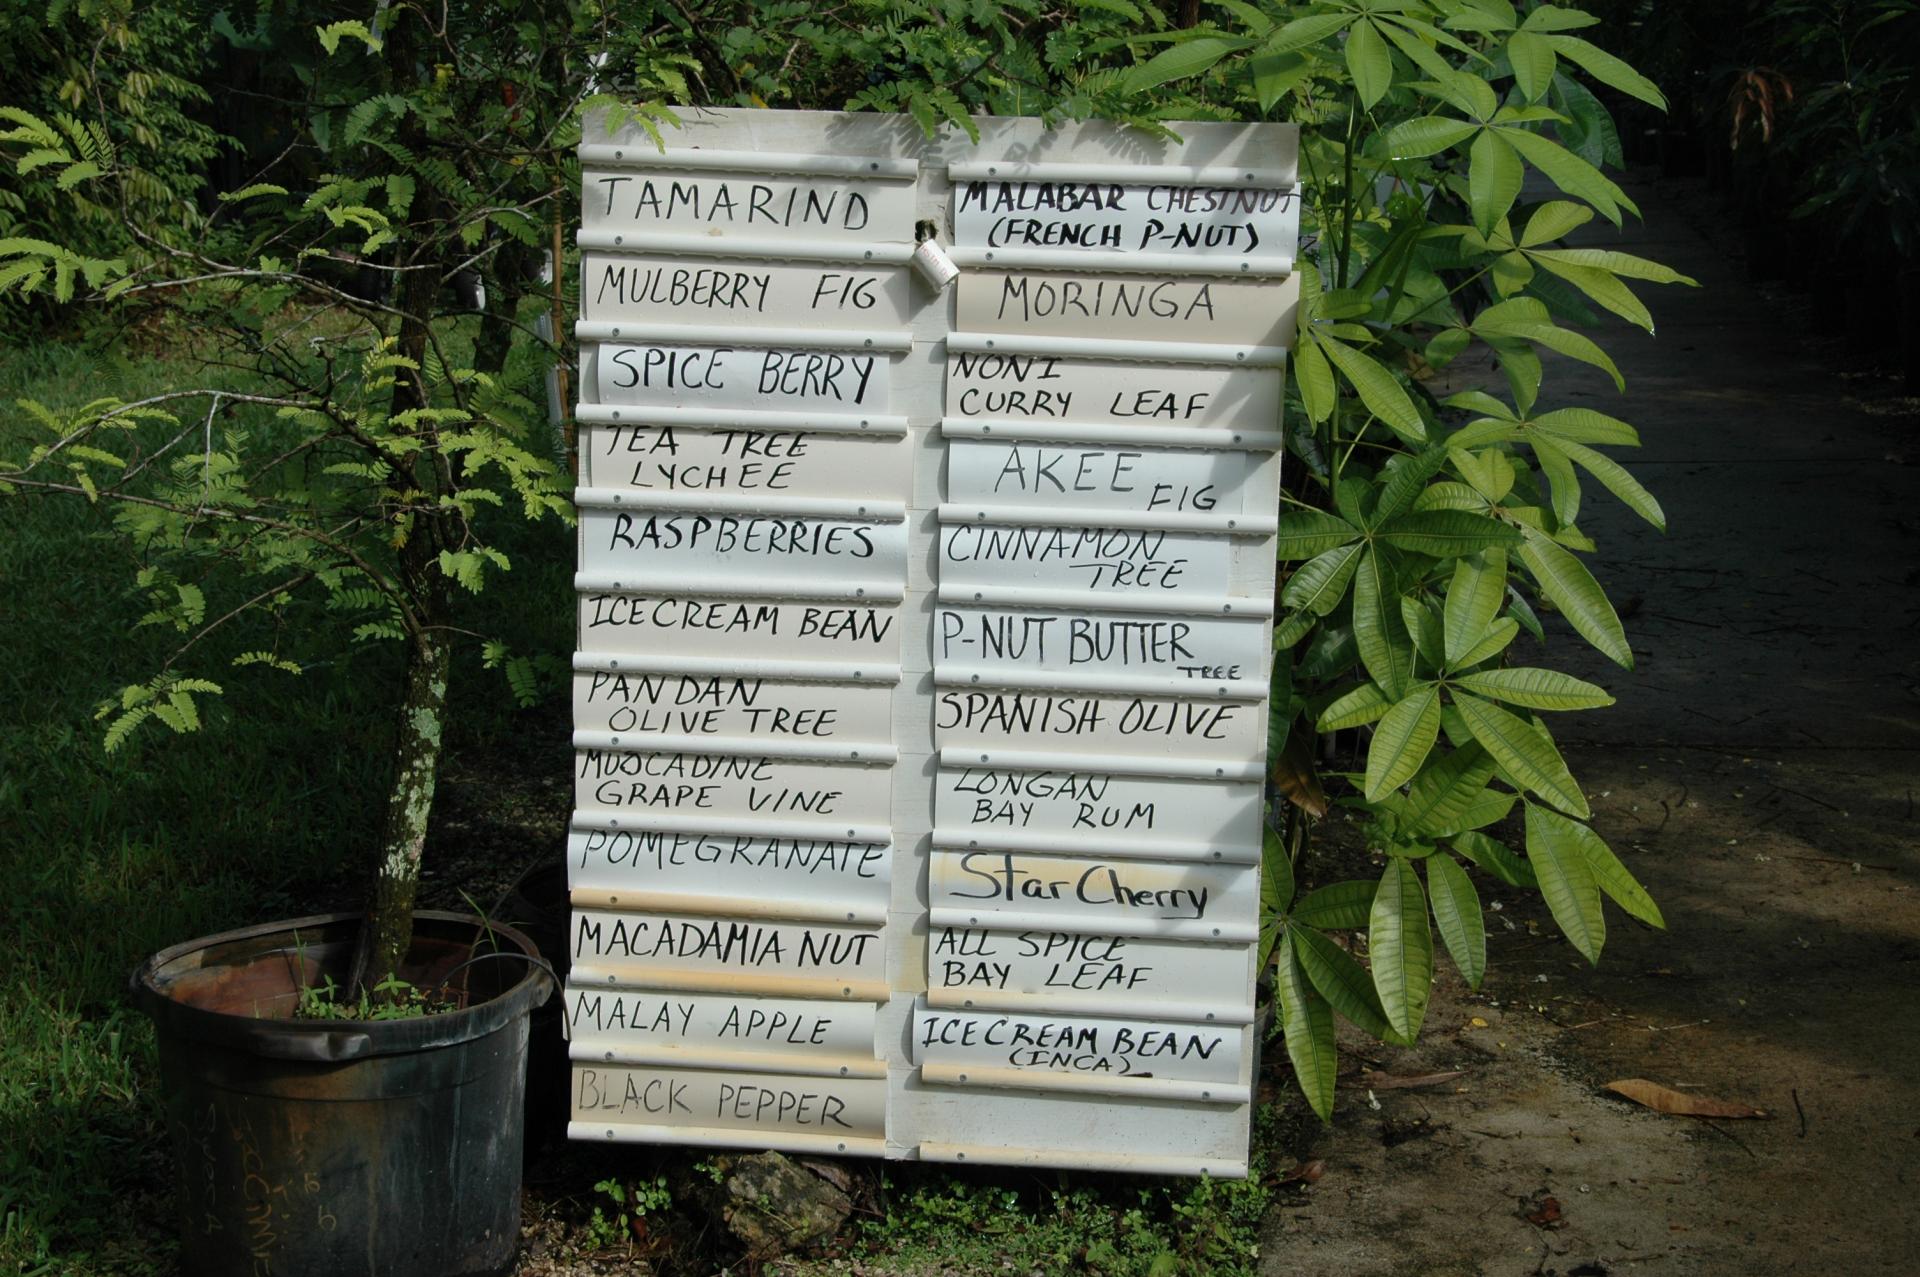 TAMARIND
MULBERRY FIG
SPICE BERRY
TEA TREE
LYCHEE
RASPBERRIES
ICE CREAM BEAN
PANDAN
OLIVE TREE
MUSCADINE
GRAPE VINE
POMEGRANATE
MACADAMIA NUT
MALAY APPLE
BLACK PEPPER
MALABAR CHESTNUT
(FRENCH P-NUT)
MORINGA
NONI
CURRY LEAF
AKEE FIG
CINNAMON
TREE
P-NUT BUTTER
TREE
SPANISH OLIVE
LONGAN
BAY RUM
Star Cherry
ALL SPICE
BAY LEAF
ICE CREAM BEAN
(INCA)